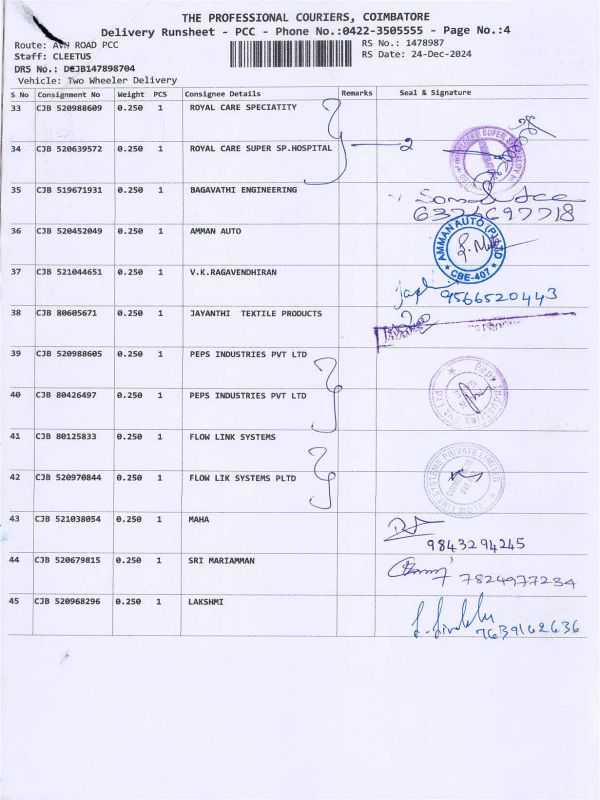 THE PROFESSIONAL COURIERS, COIMBATORE
Delivery Runsheet - PCC - Phone No.:0422-3505555 - Page No.:4
Route: ROAD PCC RS No.: 1478987
Staff: CLEETUS RS Date: 24-Dec-2024
DRS No.: DCJB147898704
Vehicle: Two Wheeler Delivery
S No Consignment No Weight PCS Consignee Details Remarks Seal & Signature
33 CJB 520988609 0.250 1 ROYAL CARE SPECIATITY
34 CJB 520639572 0.250 1 ROYAL CARE SUPER SP.HOSPITAL 2
35 CJB 519671931 0.250 1 BAGAVATHI ENGINEERING
36 CJB 520452049 0.250 1 AMMAN AUTO AMMAN AUTO (P) LTD CBE-407
37 CJB 521044651 0.250 1 V.K.RAGAVENDHIRAN 9566520443
38 CJB 80605671 0.250 1 JAYANTHI TEXTILE PRODUCTS
39 CJB 520988605 0.250 1 PEPS INDUSTRIES PVT LTD
40 CJB 80426497 0.250 1 PEPS INDUSTRIES PVT LTD
41 CJB 80125833 0.250 1 FLOW LINK SYSTEMS
42 CJB 520970844 0.250 1 FLOW LIK SYSTEMS PLTD
43 CJB 521038054 0.250 1 MAHA 9843294245
44 CJB 520679815 0.250 1 SRI MARIAMMAN 7824977234
45 CJB 520968296 0.250 1 LAKSHMI 7639162636